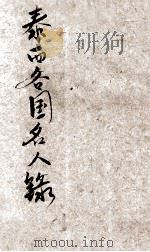 研何
泰西各国名人錄
mtoou.info